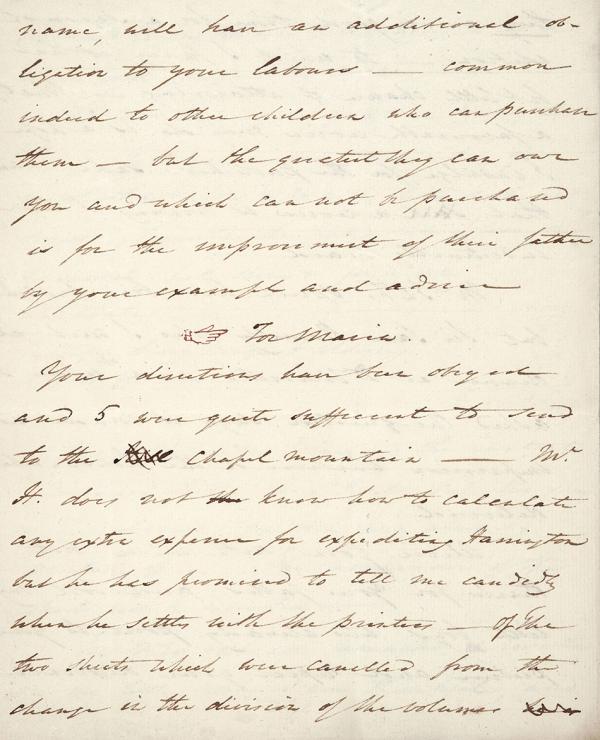 name, will have an additional ob-
ligation to your labours — common
indeed to other children who can purchase
them — but the greatest they can owe
you and which can not be purchased
is for the improvement of their father
by your example and advice
☞ For Maria.
Your directions have been obeyed
and 5 were quite sufficient to send
to the Chapel mountain — Mr.
H. does not the know how to calculate
any extra expense for expediting Harrington
but he has promised to tell me candidly
when he settles with the printers — Of the
two sheets which were cancelled from the
change in the division of the volumes